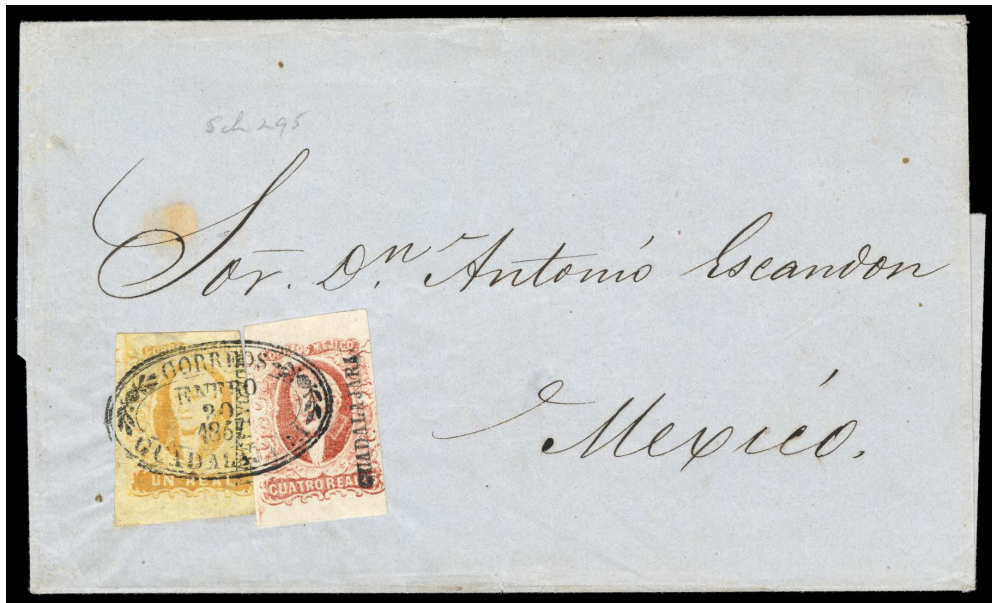 Sch 295
Sor. Dn. Antonio Escandon
Mexico.
CORREOS
ENERO
20
1857
GUADALAJARA
UN REAL
CORREOS MEJICO
GUADALAJARA
CUATRO REALES